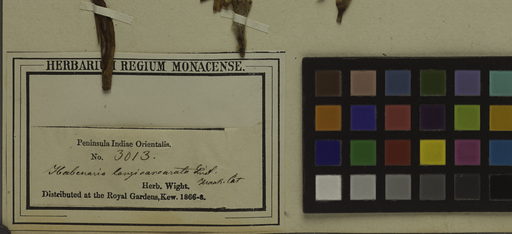 HERBARIUM REGIUM MONACENSE.
Peninsula Indiae Orientalis.
No. 3013.
Habenaria longicalcarata
Herb. Wight.
Distributed at the Royal Gardens, Kew. 1866-8.